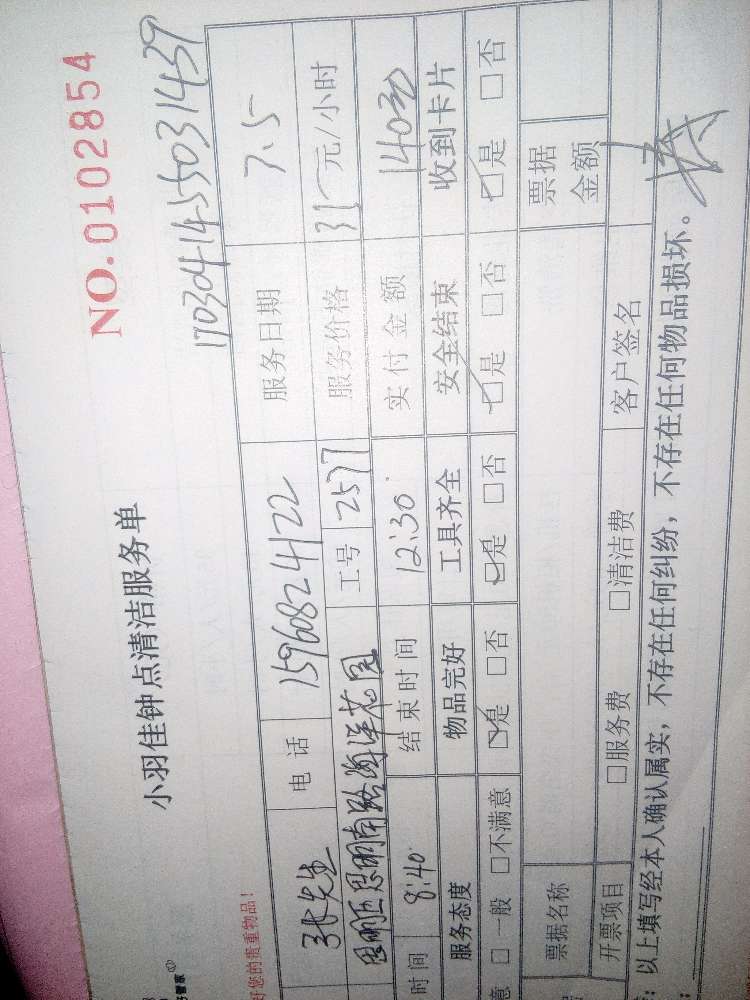 NO.0102854
小羽佳钟点清洁服务单
170304145503 1439
好您的贵重物品！
张先生 电话 15960824122 服务日期 7.5
思明区思明南路海洋花园 工号 2577 服务价格 35元/小时
时间 8:40 结束时间 12:30 实付金额 140元
服务态度 物品完好 工具齐全 安全结束 收到卡片
意 □一般 □不满意 □是 □否 □是 □否 □是 □否 □是 □否
票据名称 票据金额
开票项目 □服务费 □清洁费 客户签名
：以上填写经本人确认属实，不存在任何纠纷，不存在任何物品损坏。